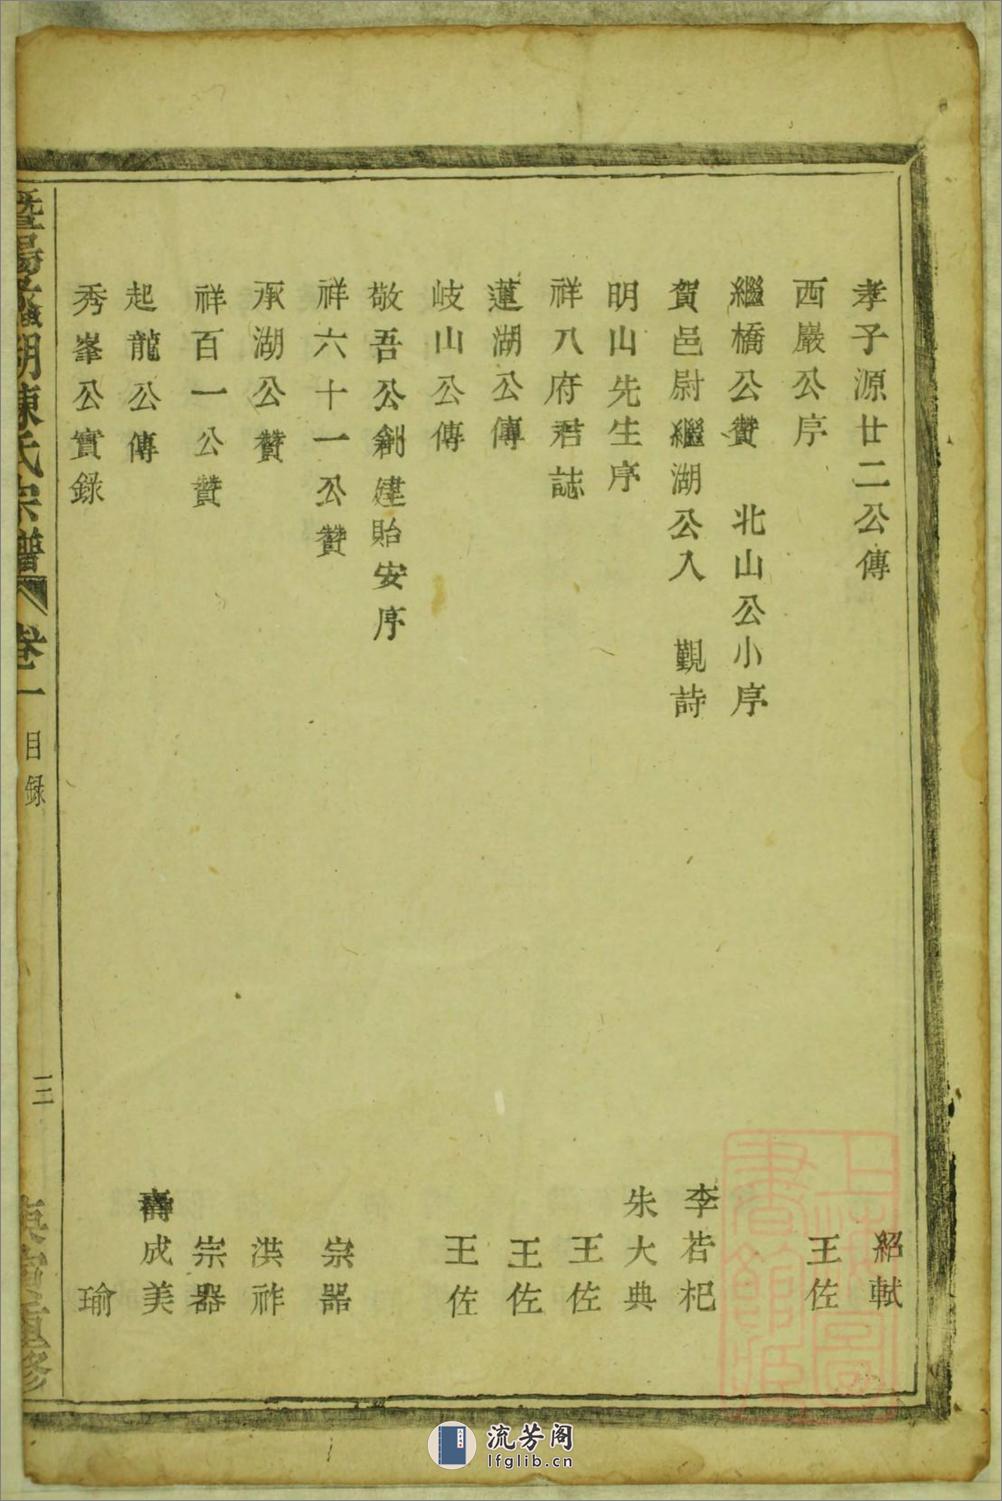 孝子源廿二公傳 紹軾
西巖公序 王佐
繼橋公贊 北山公小序
賀邑尉繼湖公入 覲詩 李若杞
明山先生序 朱大典
祥八府君誌 王佐
蓮湖公傳 王佐
岐山公傳 王佐
敬吾公創建貽安序
祥六十一公贊 宗器
承湖公贊 洪祚
祥百一公贊 宗器
起龍公傳 壽成美
秀峯公實錄 瑜
暨陽 湖陳氏宗譜 卷一 目录 三 庚寅重修
上海圖書館藏
流芳阁
lfglib.cn